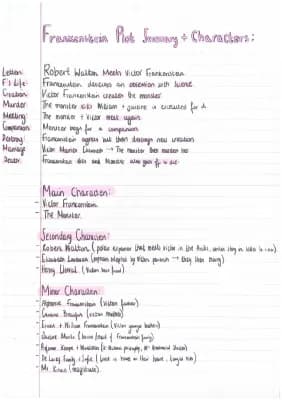 Frankenstein Plot Summary + Characters:
Letters: Robert Walton Meets Victor Frankenstein.
F's Life: Frankenstein develops an obsession with science
Creation: Victor Frankenstein creates the monster
Murder: The monster kills William + Justine is executed for it.
Meeting: The monster + Victor meet again
Companion: Monster begs for a companion
Destroy: Frankenstein agrees but then destroys new creation
Marriage: Victor Marries Elizabeth → The monster then murders her
Death: Frankenstein dies and Monster also goes off to die.
Main Characters:
- Victor Frankenstein.
- The Monster.
Secondary Characters:
- Robert Walton (polar explorer that meets Victor in the Arctic,
- Elizabeth Lavenza (orphan adopted by Victors parents → they then marry)
- Henry Clerval (Victors best friend)
Minor Characters:
- Alphonse Frankenstein (Victors father)
- Caroline Beaufort (Victors mother)
- Ernest + William Frankenstein (Victors younger brothers)
- Justine Moritz
- Professors Krempe + Waldman
- De Lacey family + Safie
- Mr. Kirwin (magistrate).